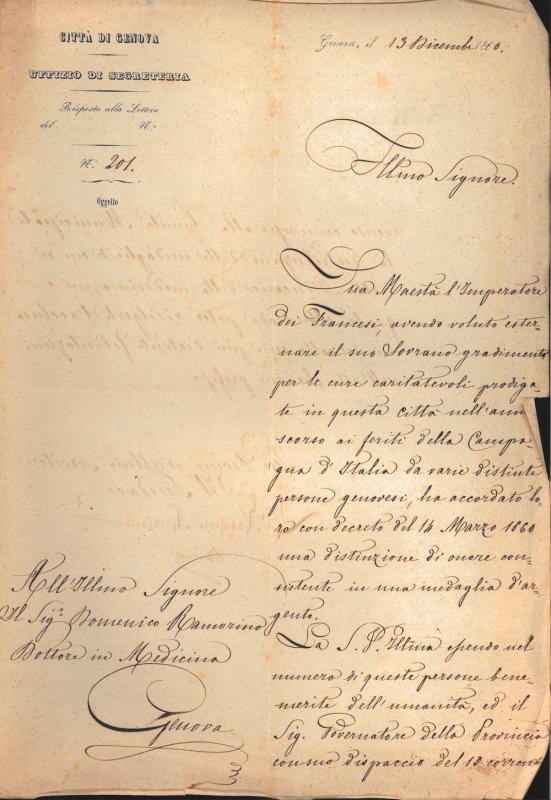 CITTÀ DI GENOVA
UFFIZIO DI SEGRETERIA
Risposta alla Lettera
del N.º
N.º 201.
Oggetto
Genova, il 13 Dicembre 1860.
Illmo Signore.
Sua Maestà l'Imperatore
dei Francesi, avendo voluto ester-
nare il suo Sovrano gradimento
per le cure caritatevoli prodiga-
te in questa città nell'anno
scorso ai feriti della Campa-
gna d'Italia da varie distinte
persone genovesi, ha accordato lo-
ro con decreto del 14 Marzo 1860
una distinzione di onore con-
sistente in una medaglia d'ar-
gento.
La S. V. Illma essendo nel
numero di queste persone bene-
merite dell'umanità, ed il
Sig. Governatore della Provincia
con suo dispaccio del 12 corrente
All'Illmo Signore
Il Sig.r Domenico Ramorino
Dottore in Medicina
Genova